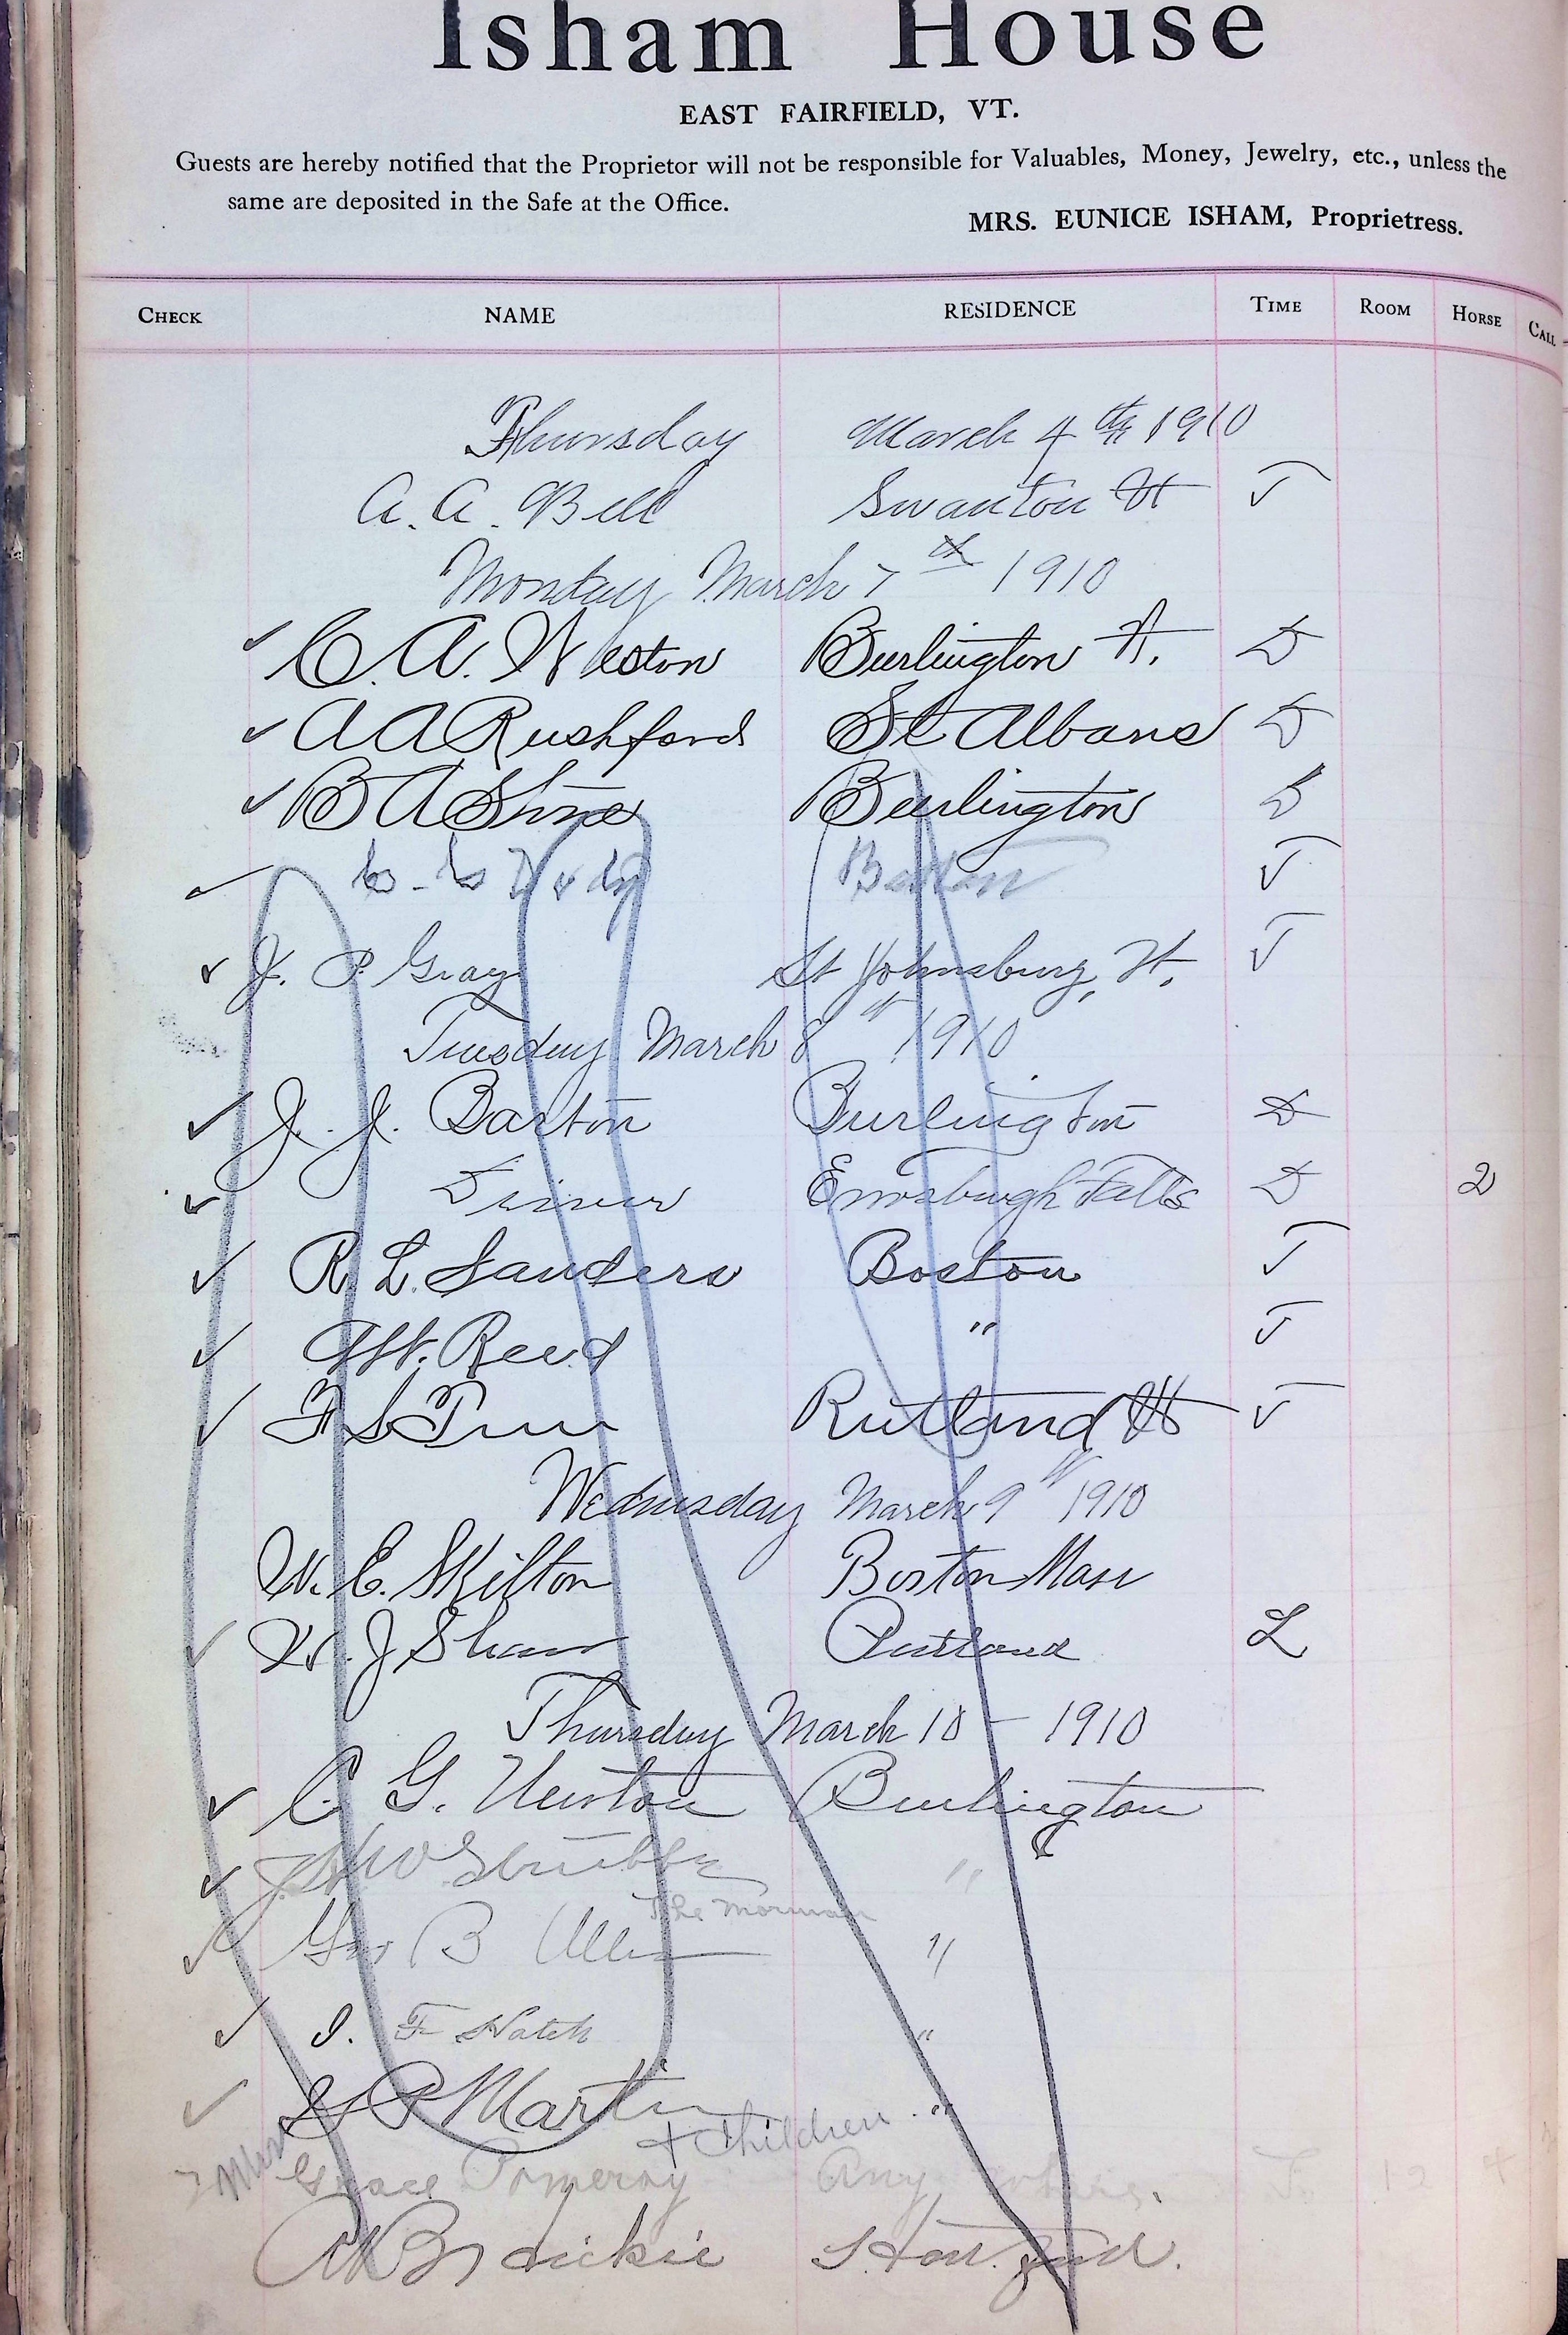 Isham House
EAST FAIRFIELD, VT.
Guests are hereby notified that the Proprietor will not be responsible for Valuables, Money, Jewelry, etc., unless the
same are deposited in the Safe at the Office.
MRS. EUNICE ISHAM, Proprietress.
CHECK NAME RESIDENCE TIME ROOM HORSE CALL
Thursday March 4th 1910
A. A. Bell Swanton Vt
Monday March 7th 1910
C. A. Weston Burlington Vt. D
A A Rushford St Albans D
B A Stone Burlington D
Boston
J. P. Gray St Johnsbury, Vt.
Tuesday March 8th 1910
J. J. Barton Burlington D
Enosburgh Falls D 2
R. L. Sanders Boston
Reed "
Rutland Vt
Wednesday March 9th 1910
W. E. Skilton Boston Mass
W. J. Shaw Rutland L
Thursday March 10 - 1910
C. G. Newton Burlington
"
The Morman
Geo B Allen "
I. F Hatch "
Martin "
+ Children
Mrs Grace Pomeroy Any